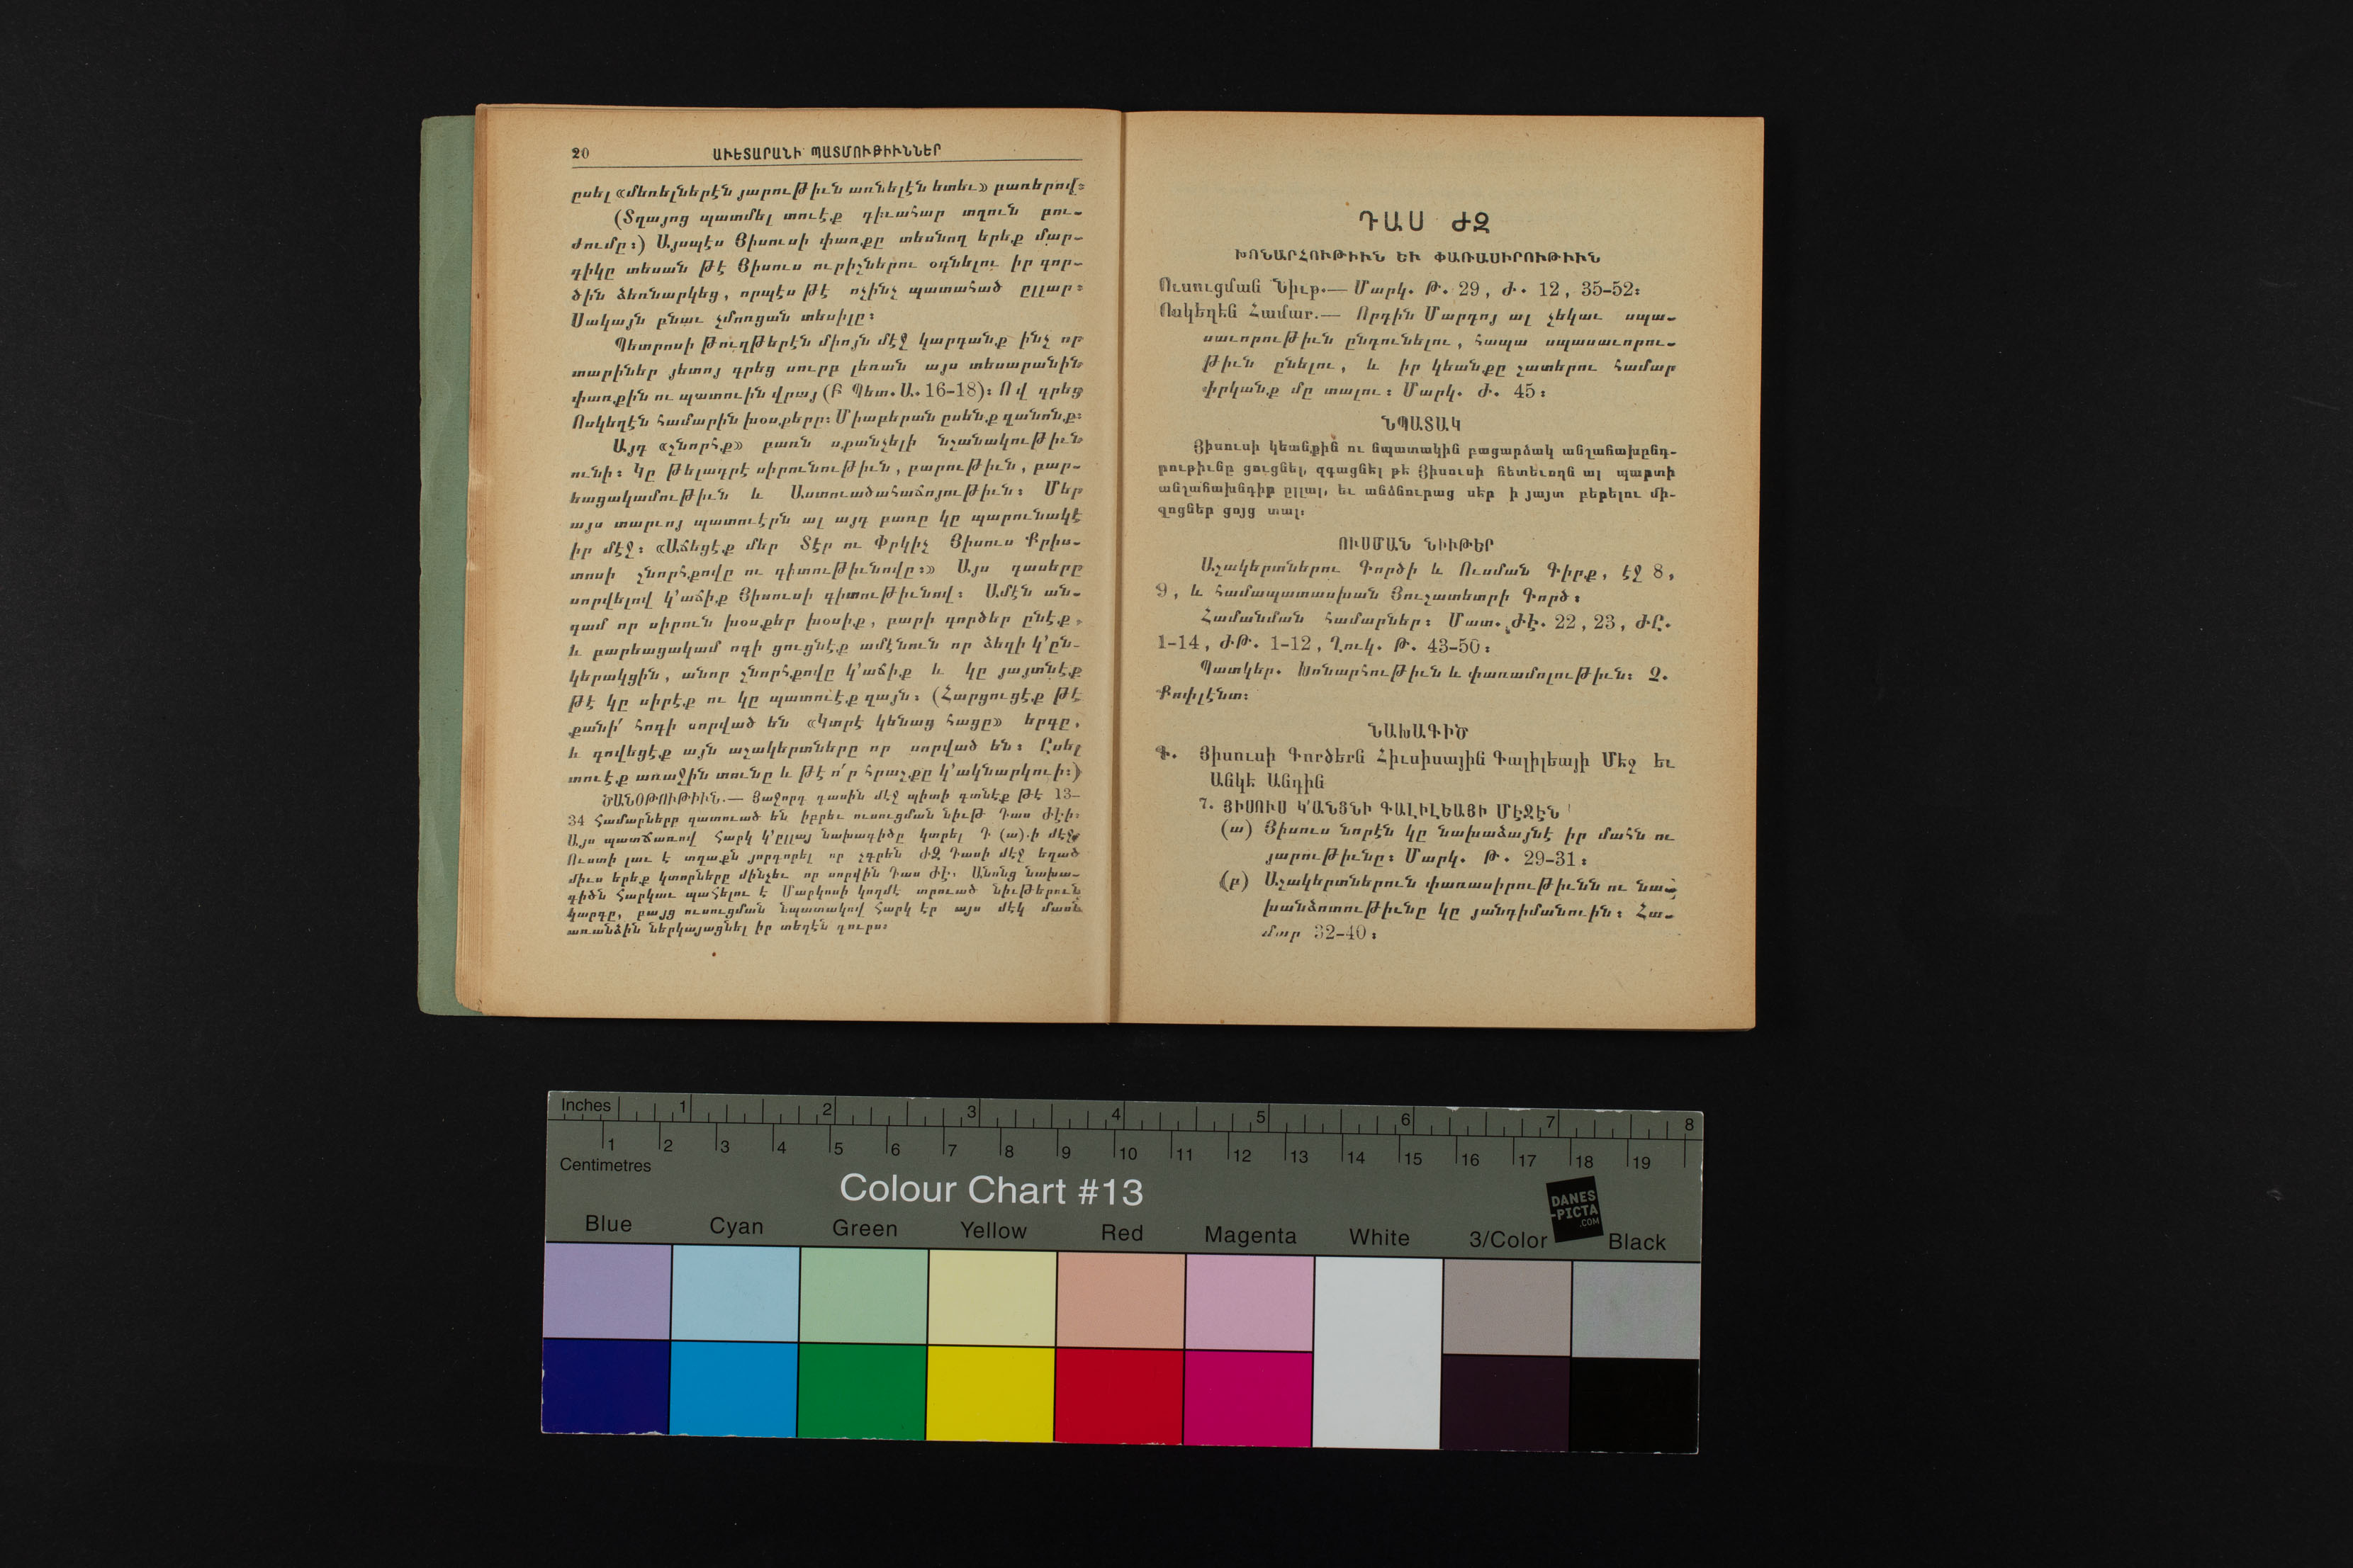 20 ԱՒԵՏԱՐԱՆԻ ՊԱՏՄՈՒԹԻՒՆՆԵՐ
ըսել «մեռելներէն յարութիւն առնելէն ետեւ» բառերով։
(Տղայոց պատմել տուէք դիւահար տղուն բու-
ժումը։) Այսպէս Յիսուսի փառքը տեսնող երեք մար-
դիկը տեսան թէ Յիսուս ուրիշներու օգնելու իր գոր-
ծին ձեռնարկեց, որպէս թէ ոչինչ պատահած ըլլար։
Սակայն բնաւ չմոռցան տեսիլը։
Պետրոսի թուղթերէն միոյն մէջ կարդանք ինչ որ
տարիներ յետոյ գրեց սուրբ լեռան այս տեսարանին
փառքին ու պատուին վրայ (Բ Պետ. Ա. 16-18)։ Ով գրեց
Ոսկեղէն համարին խօսքերը։ Միաբերան ըսենք զանոնք։
Այդ «շնորհք» բառն սքանչելի նշանակութիւն
ունի։ Կը թելադրէ սիրունութիւն, բարութիւն, բար-
եացակամութիւն և Աստուածահաճոյութիւն։ Մեր
այս տարւոյ պատուէրն ալ այդ բառը կը պարունակէ
իր մէջ։ «Աճեցէք մեր Տէր ու Փրկիչ Յիսուս Քրիս-
տոսի շնորհքովը ու գիտութիւնովը։» Այս դասերը
սորվելով կ՚աճիք Յիսուսի գիտութիւնով։ Ամէն ան-
գամ որ սիրուն խօսքեր խօսիք, բարի գործեր ընէք,
և բարեացակամ ոգի ցուցնէք ամէնուն որ ձեզի կ՚ըն-
կերակցին, անոր շնորհքովը կ՚աճիք և կը յայտնէք
թէ կը սիրէք ու կը պատուէք զայն։ (Հարցուցէք թէ
քանի՛ հոգի սորված են «Կտրէ կենաց հացը» երգը,
և գովեցէք այն աշակերտները որ սորված են։ Ըսել
տուէք առաջին տունը և թէ ո՛ր հրաշքը կ՚ակնարկուի։)
ԾԱՆՕԹՈՒԹԻՒՆ.— Յաջորդ դասին մէջ պիտի գտնէք թէ 13-
34 Համարները զատուած են իբրեւ ուսուցման նիւթ Դաս ԺԷի։
Այս պատճառով հարկ կ՚ըլլայ նախագիծը կտրել Դ (ա)-ի մէջ։
Ուստի լաւ է տղաքն յորդորել որ չգրեն ԺԶ Դասի մէջ եղած
միւս երեք կտորները մինչեւ որ սորվին Դաս ԺԷ. Անոնց նախա-
գիծն հարկաւ պահելու է Մարկոսի կողմէ տրուած նիւթերուն
կարգը, բայց ուսուցման նպատակով հարկ էր այս մէկ մասն
առանձին ներկայացնել իր տեղէն դուրս։
ԴԱՍ ԺԶ
ԽՈՆԱՐՀՈՒԹԻՒՆ ԵՒ ՓԱՌԱՍԻՐՈՒԹԻՒՆ
Ուսուցման Նիւթ.— Մարկ. Թ. 29, Ժ. 12, 35-52։
Ոսկեղէն Համար.— Որդին Մարդոյ ալ չեկաւ սպա-
սաւորութիւն ընդունելու, հապա սպասաւորու-
թիւն ընելու, և իր կեանքը շատերու համար
փրկանք մը տալու։ Մարկ. Ժ. 45։
ՆՊԱՏԱԿ
Յիսուսի կեանքին ու նպատակին բացարձակ անշահախընդ-
րութիւնը ցուցնել, զգացնել թէ Յիսուսի հետեւողն ալ պարտի
անշահախնդիր ըլլալ, եւ անձնուրաց սէր ի յայտ բերելու մի-
ջոցներ ցոյց տալ։
ՈՒՍՄԱՆ ՆԻՒԹԵՐ
Աշակերտներու Գործի և Ուսման Գիրք, էջ 8,
9, և համապատասխան Յուշատետրի Գործ։
Համանման համարներ։ Մատ. ԺԷ. 22, 23, ԺԸ.
1-14, ԺԹ. 1-12, Ղուկ. Թ. 43-50։
Պատկեր. Խոնարհութիւն և փառամոլութիւն։ Չ.
Քոփլէնտ։
ՆԱԽԱԳԻԾ
Գ. Յիսուսի Գործերն Հիւսիսային Գալիլեայի Մէջ եւ
Անկէ Անդին
7. ՅԻՍՈՒՍ Կ՚ԱՆՑՆԻ ԳԱԼԻԼԵԱՅԻ ՄԷՋԷՆ
(ա) Յիսուս նորէն կը նախաձայնէ իր մահն ու
յարութիւնը։ Մարկ. Թ. 29-31։
(բ) Աշակերտներուն փառասիրութիւնն ու նա-
խանձոտութիւնը կը յանդիմանուին։ Հա-
մար 32-40։
Inches 1 2 3 4 5 6 7 8
1 2 3 4 5 6 7 8 9 10 11 12 13 14 15 16 17 18 19
Centimetres
Colour Chart #13
DANES
-PICTA
.COM
Blue Cyan Green Yellow Red Magenta White 3/Color Black